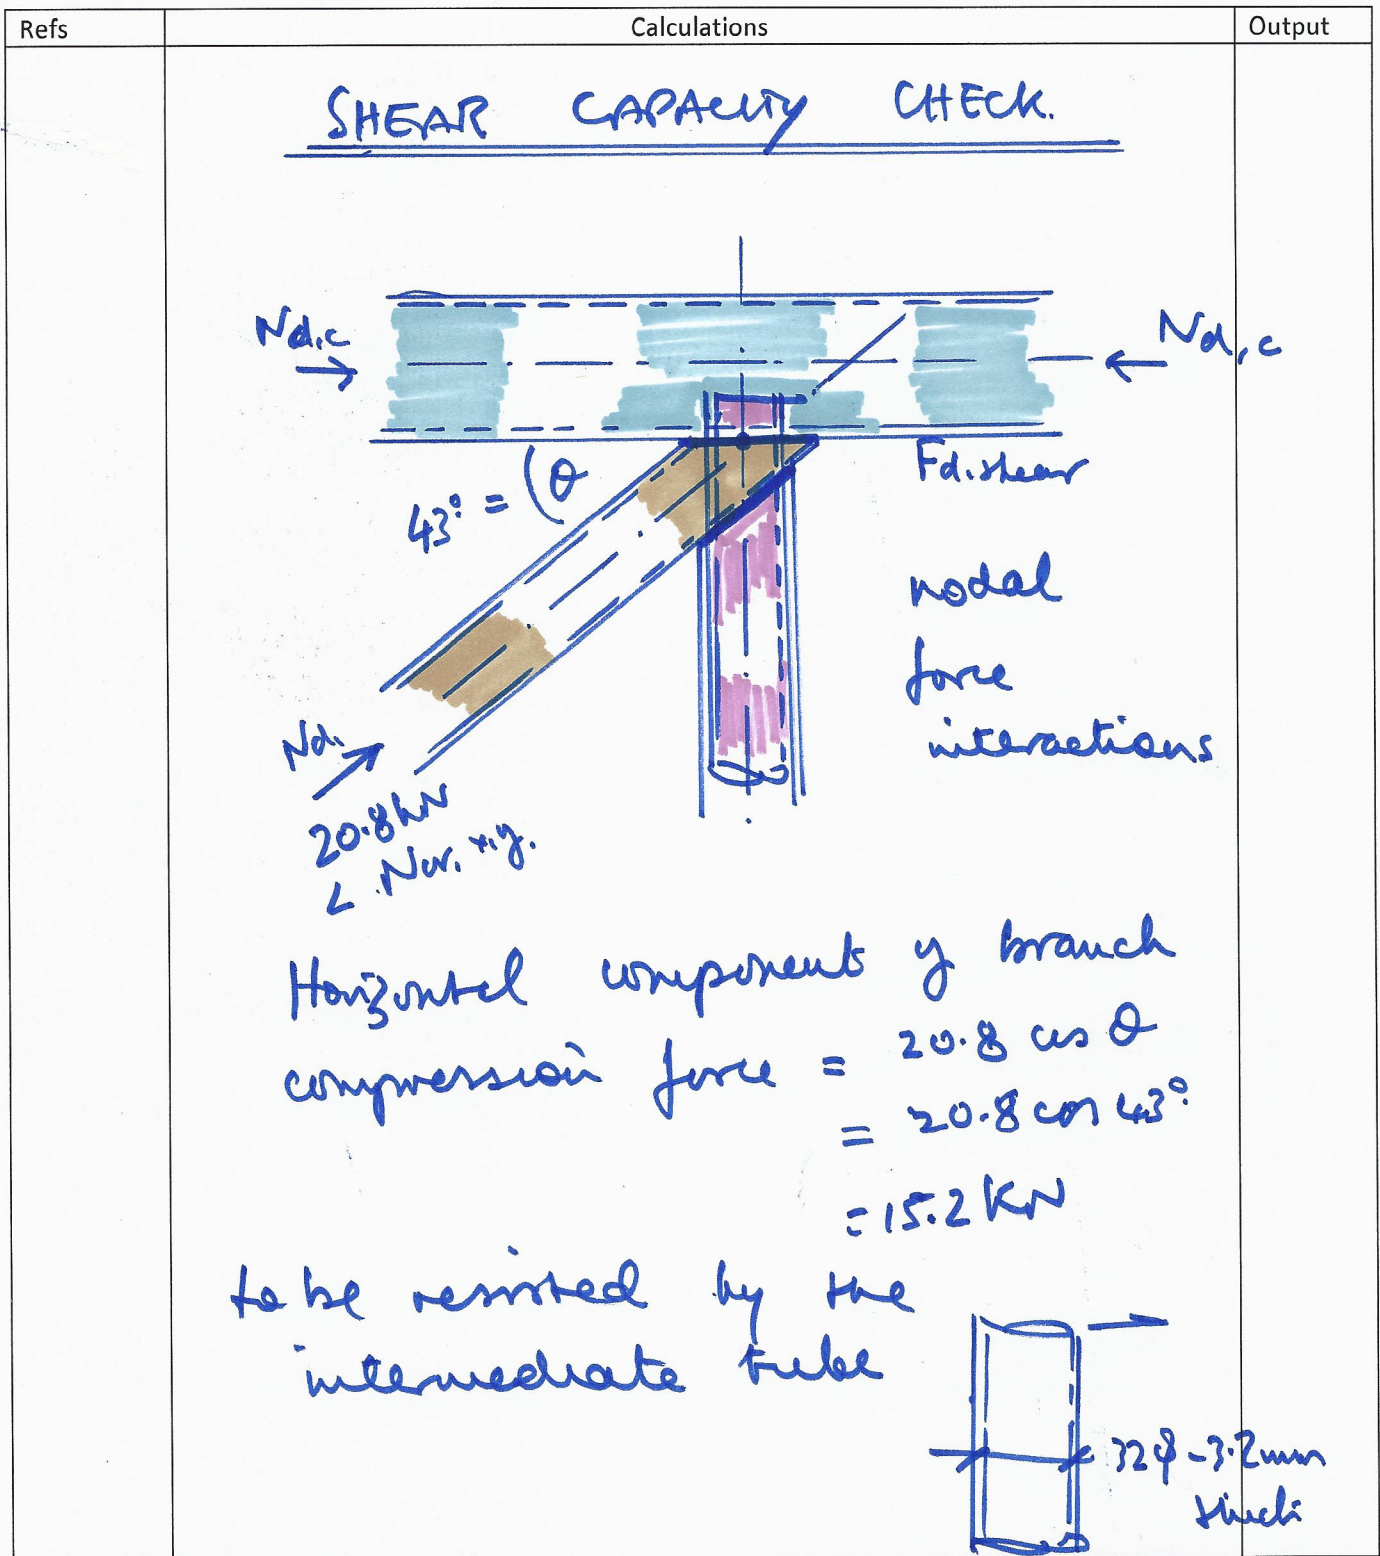 Refs Calculations Output
SHEAR CAPACITY CHECK.
Nd,c Nd,c
43° = (θ
Fd.shear
nodal
force
interactions
Nd.
20.8kN
< Ncr. x.y.
Horizontal components of branch
compression force = 20.8 cos θ
= 20.8 cos 43°
= 15.2 KN
to be resisted by the
intermediate tube
32φ - 3.2mm
thick